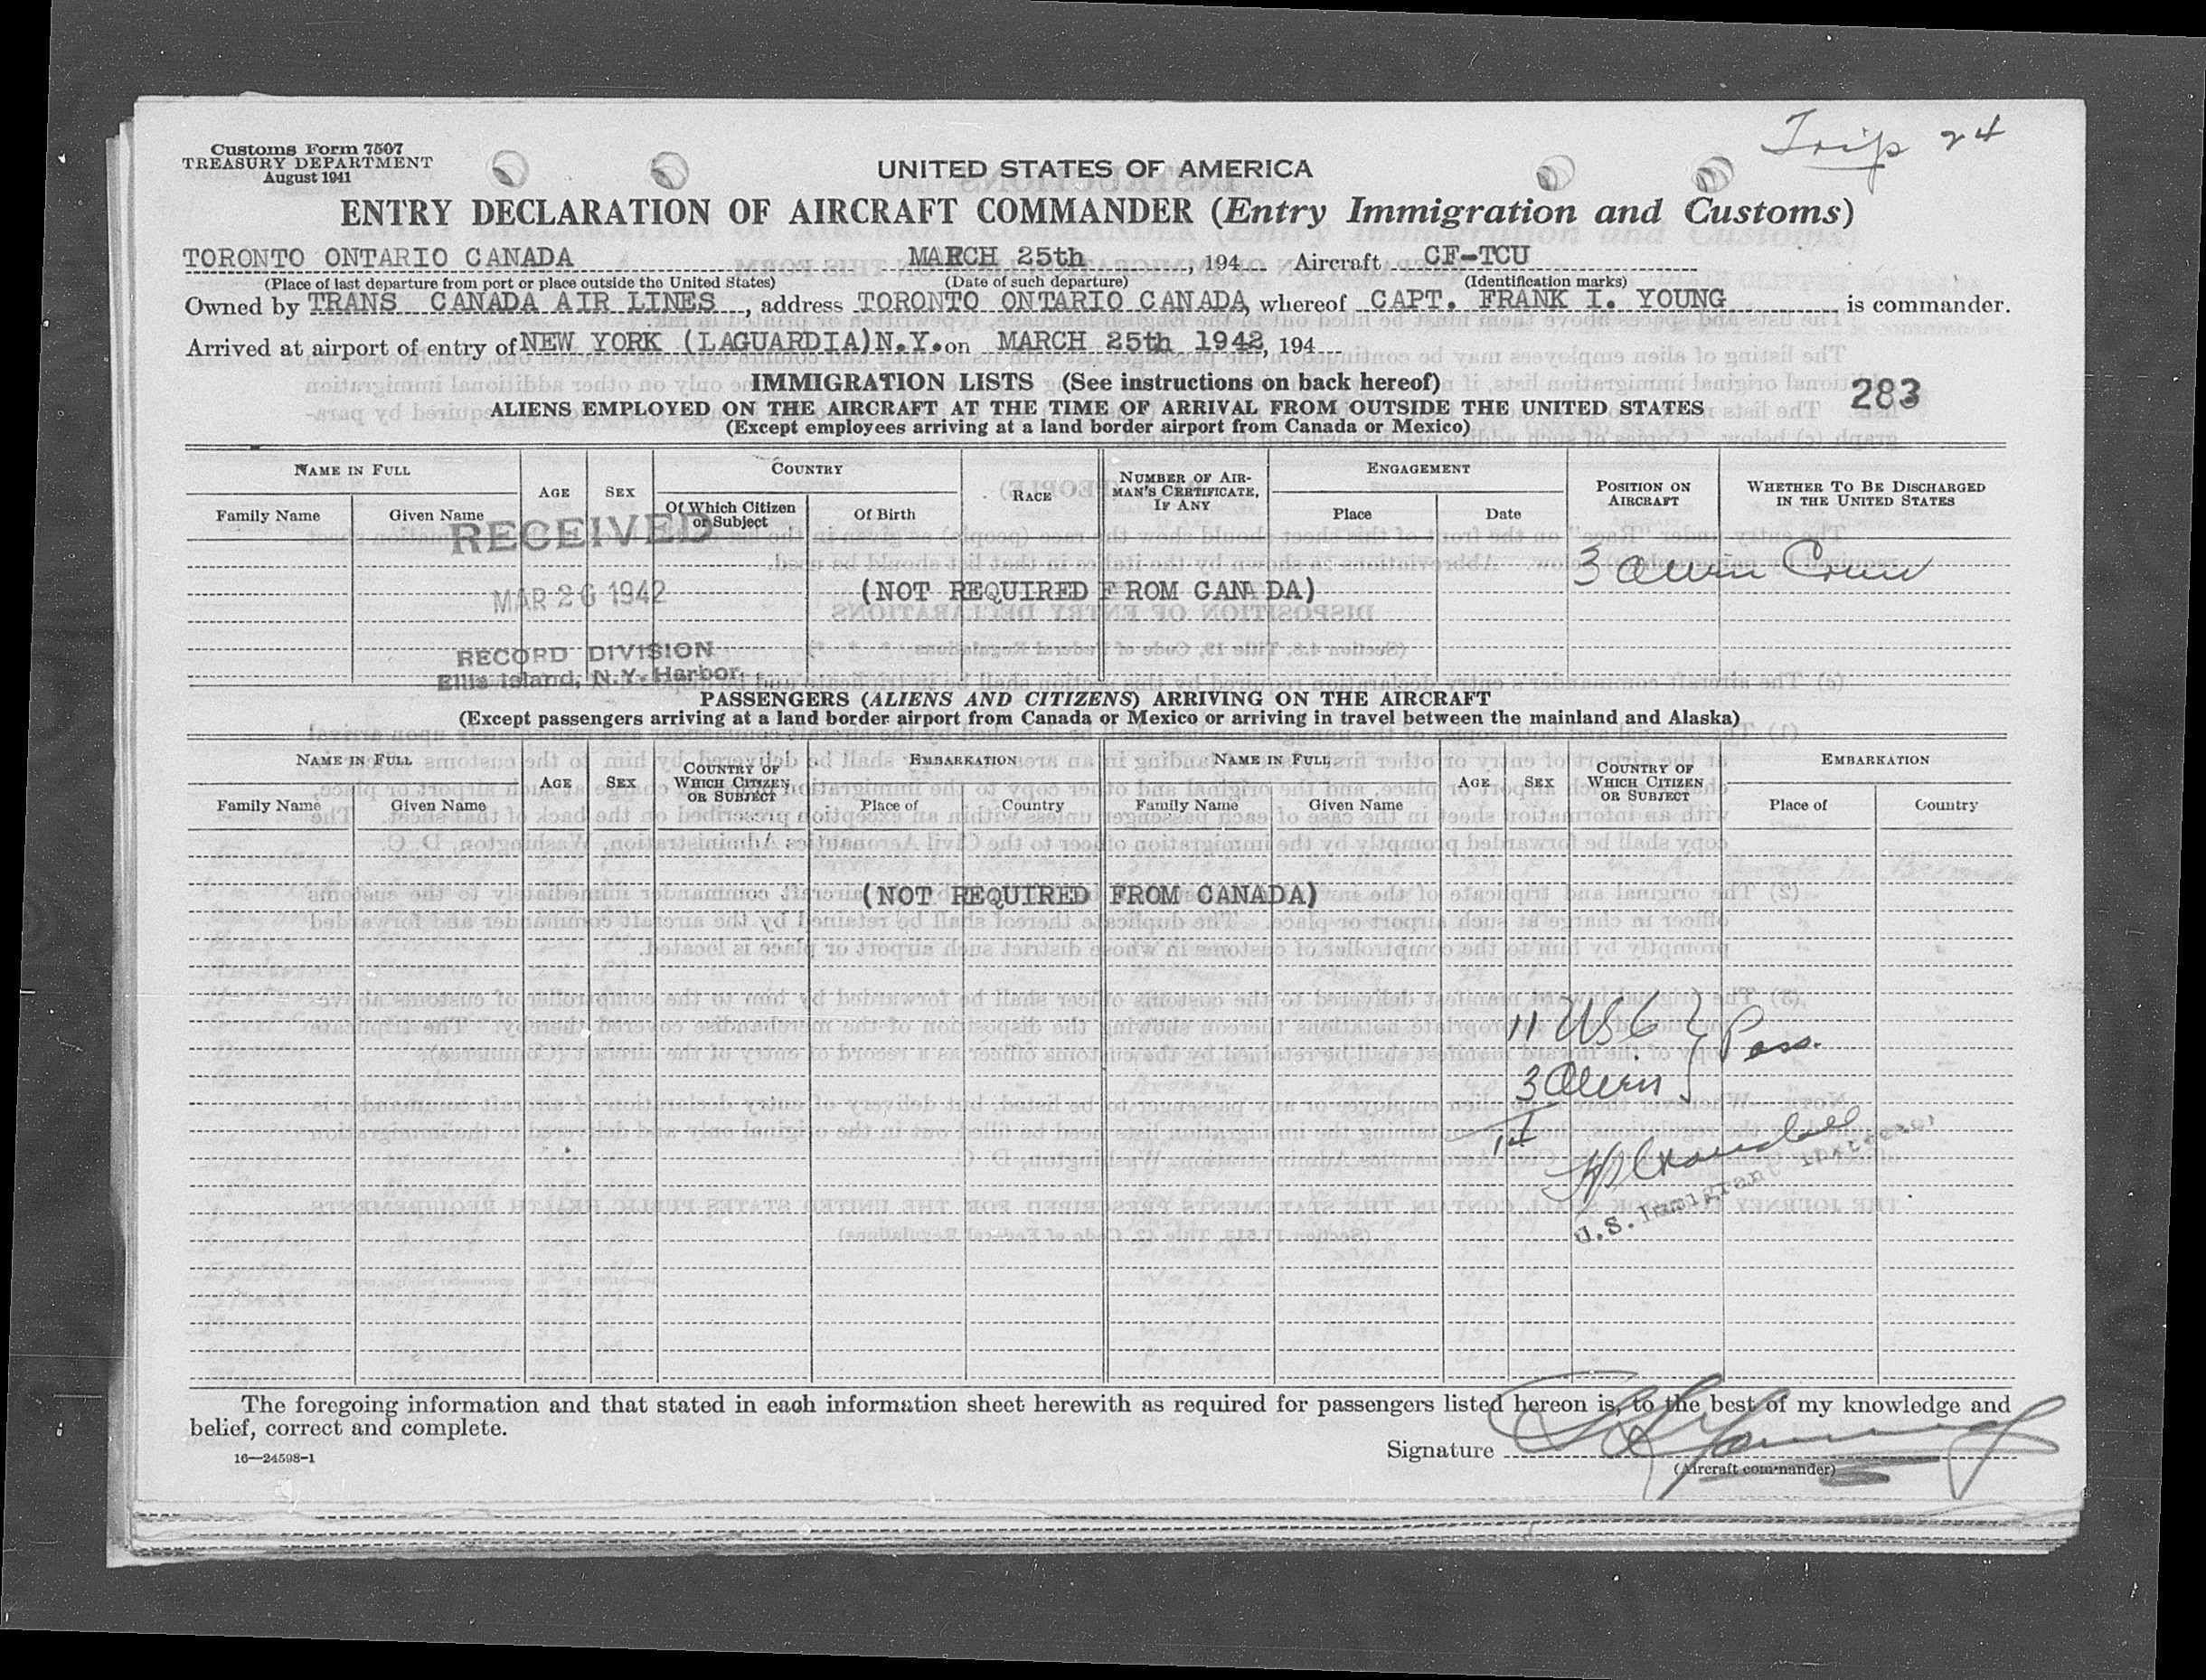 Trip 24
Customs Form 7507
TREASURY DEPARTMENT
August 1941
UNITED STATES OF AMERICA
ENTRY DECLARATION OF AIRCRAFT COMMANDER (Entry Immigration and Customs)
TORONTO ONTARIO CANADA MARCH 25th, 194 Aircraft CF-TCU
(Place of last departure from port or place outside the United States) (Date of such departure) (Identification marks)
Owned by TRANS CANADA AIR LINES, address TORONTO ONTARIO CANADA, whereof CAPT. FRANK I. YOUNG is commander.
Arrived at airport of entry of NEW YORK (LAGUARDIA) N.Y. on MARCH 25th 1942, 194
IMMIGRATION LISTS (See instructions on back hereof)
283
ALIENS EMPLOYED ON THE AIRCRAFT AT THE TIME OF ARRIVAL FROM OUTSIDE THE UNITED STATES
(Except employees arriving at a land border airport from Canada or Mexico)
NAME IN FULL AGE SEX COUNTRY RACE NUMBER OF AIRMAN'S CERTIFICATE, IF ANY ENGAGEMENT POSITION ON AIRCRAFT WHETHER TO BE DISCHARGED IN THE UNITED STATES
Family Name Given Name Of Which Citizen or Subject Of Birth Place Date
RECEIVED
3 Alien Crew
MAR 26 1942
(NOT REQUIRED FROM CANADA)
RECORD DIVISION
Ellis Island, N.Y. Harbor
PASSENGERS (ALIENS AND CITIZENS) ARRIVING ON THE AIRCRAFT
(Except passengers arriving at a land border airport from Canada or Mexico or arriving in travel between the mainland and Alaska)
NAME IN FULL AGE SEX COUNTRY OF WHICH CITIZEN OR SUBJECT EMBARKATION NAME IN FULL AGE SEX COUNTRY OF WHICH CITIZEN OR SUBJECT EMBARKATION
Family Name Given Name Place of Country Family Name Given Name Place of Country
(NOT REQUIRED FROM CANADA)
11 USC } Pass.
3 Alien
14
U.S. Immigrant Inspector
The foregoing information and that stated in each information sheet herewith as required for passengers listed hereon is, to the best of my knowledge and
belief, correct and complete.
16—24598-1
Signature
(Aircraft commander)